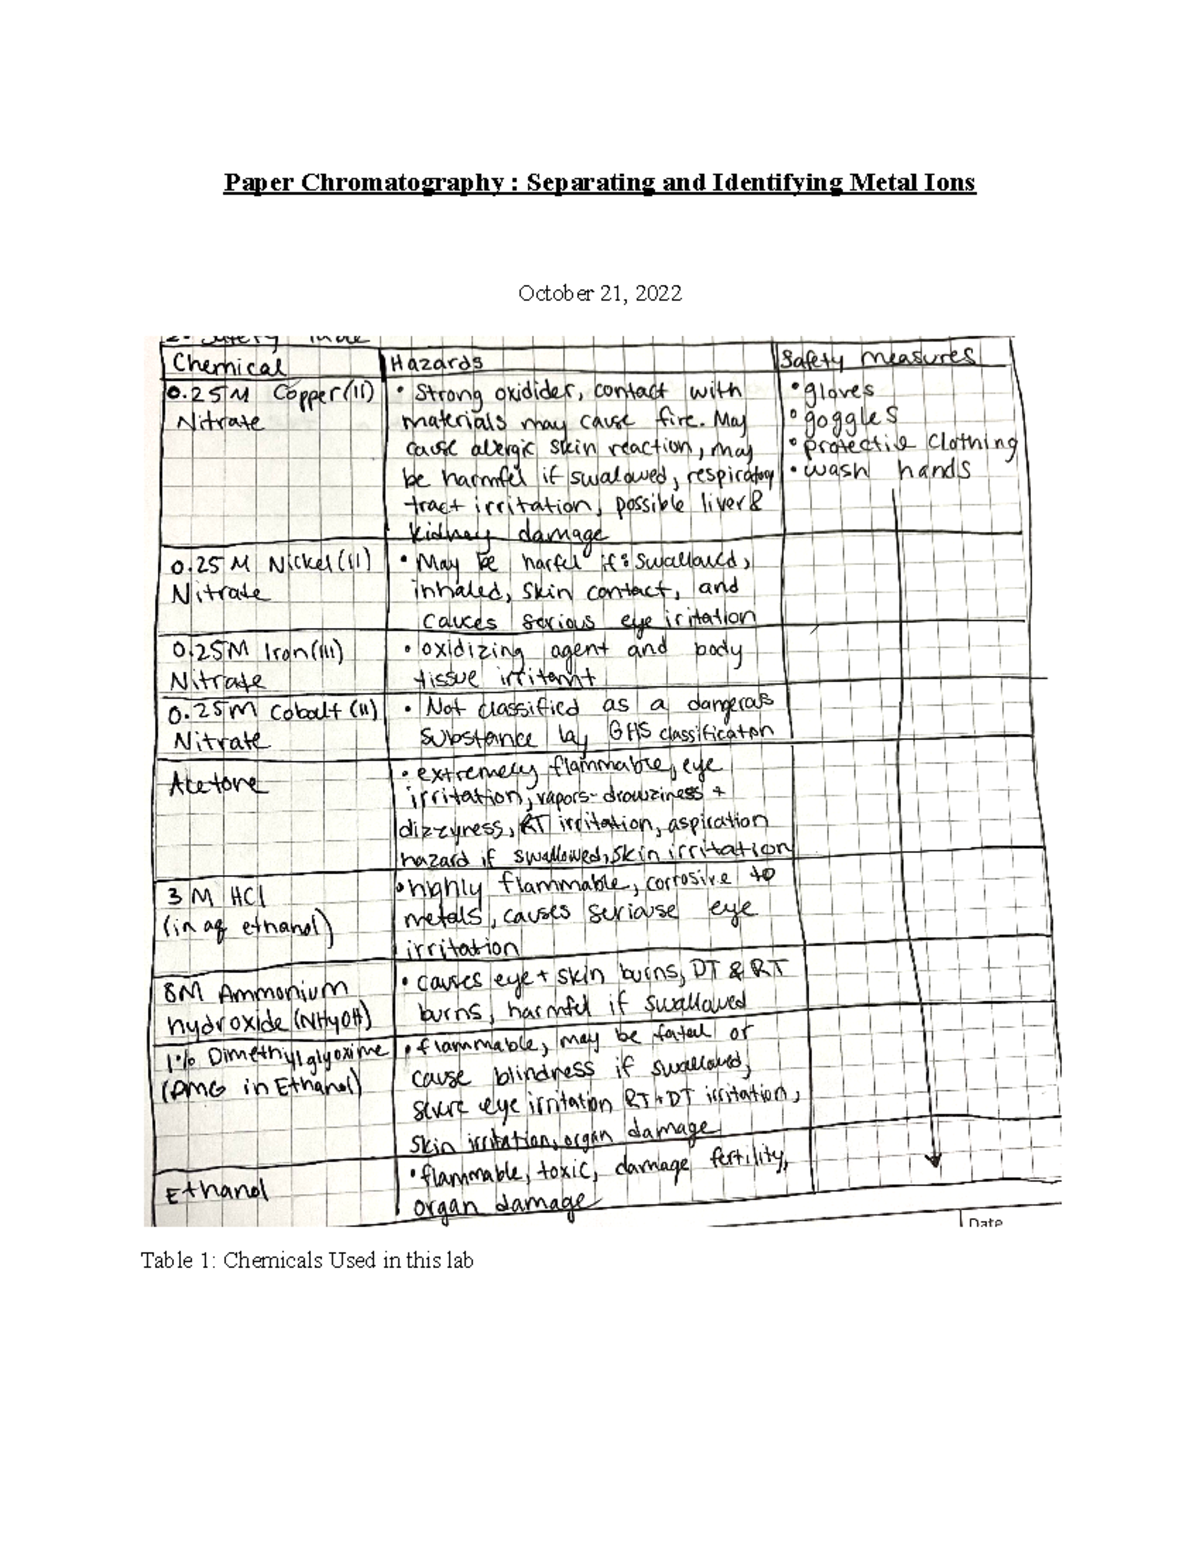 Paper Chromatography : Separating and Identifying Metal Ions
October 21, 2022
2. Safety
Chemical
Hazards
Safety measures
0.25M Copper(II)
Nitrate
• Strong oxidider, contact with
materials may cause fire. May
cause alergic skin reaction, may
be harmful if swalowed, respiratory
tract irritation, possible liver &
kidney damage
• gloves
• goggles
• protective clothing
• wash hands
0.25 M Nickel(II)
Nitrate
• May be harful if: swallowed,
inhaled, skin contact, and
causes serious eye iritation
0.25M Iron(III)
Nitrate
• oxidizing agent and body
tissue irritant
0.25M Cobalt (II)
Nitrate
• Not classified as a dangerous
substance by GHS classification
Acetone
• extremely flammable, eye
irritation, vapors-drowziness +
dizzyness, RT irritation, aspiration
hazard if swallowed, skin irritation
3 M HCl
(in aq ethanol)
• highly flammable, corrosive to
metals, causes seriouse eye
irritation
8M Ammonium
hydroxide (NH4OH)
• causes eye + skin burns, DT & RT
burns, harmful if swallowed
1% Dimethylglyoxime
(DMG in Ethanol)
• flammable, may be fatal or
cause blindness if swallowed,
severe eye irritation RT + DT irritation,
skin irritation, organ damage
Ethanol
• flammable, toxic, damage fertility,
organ damage
Date
Table 1: Chemicals Used in this lab